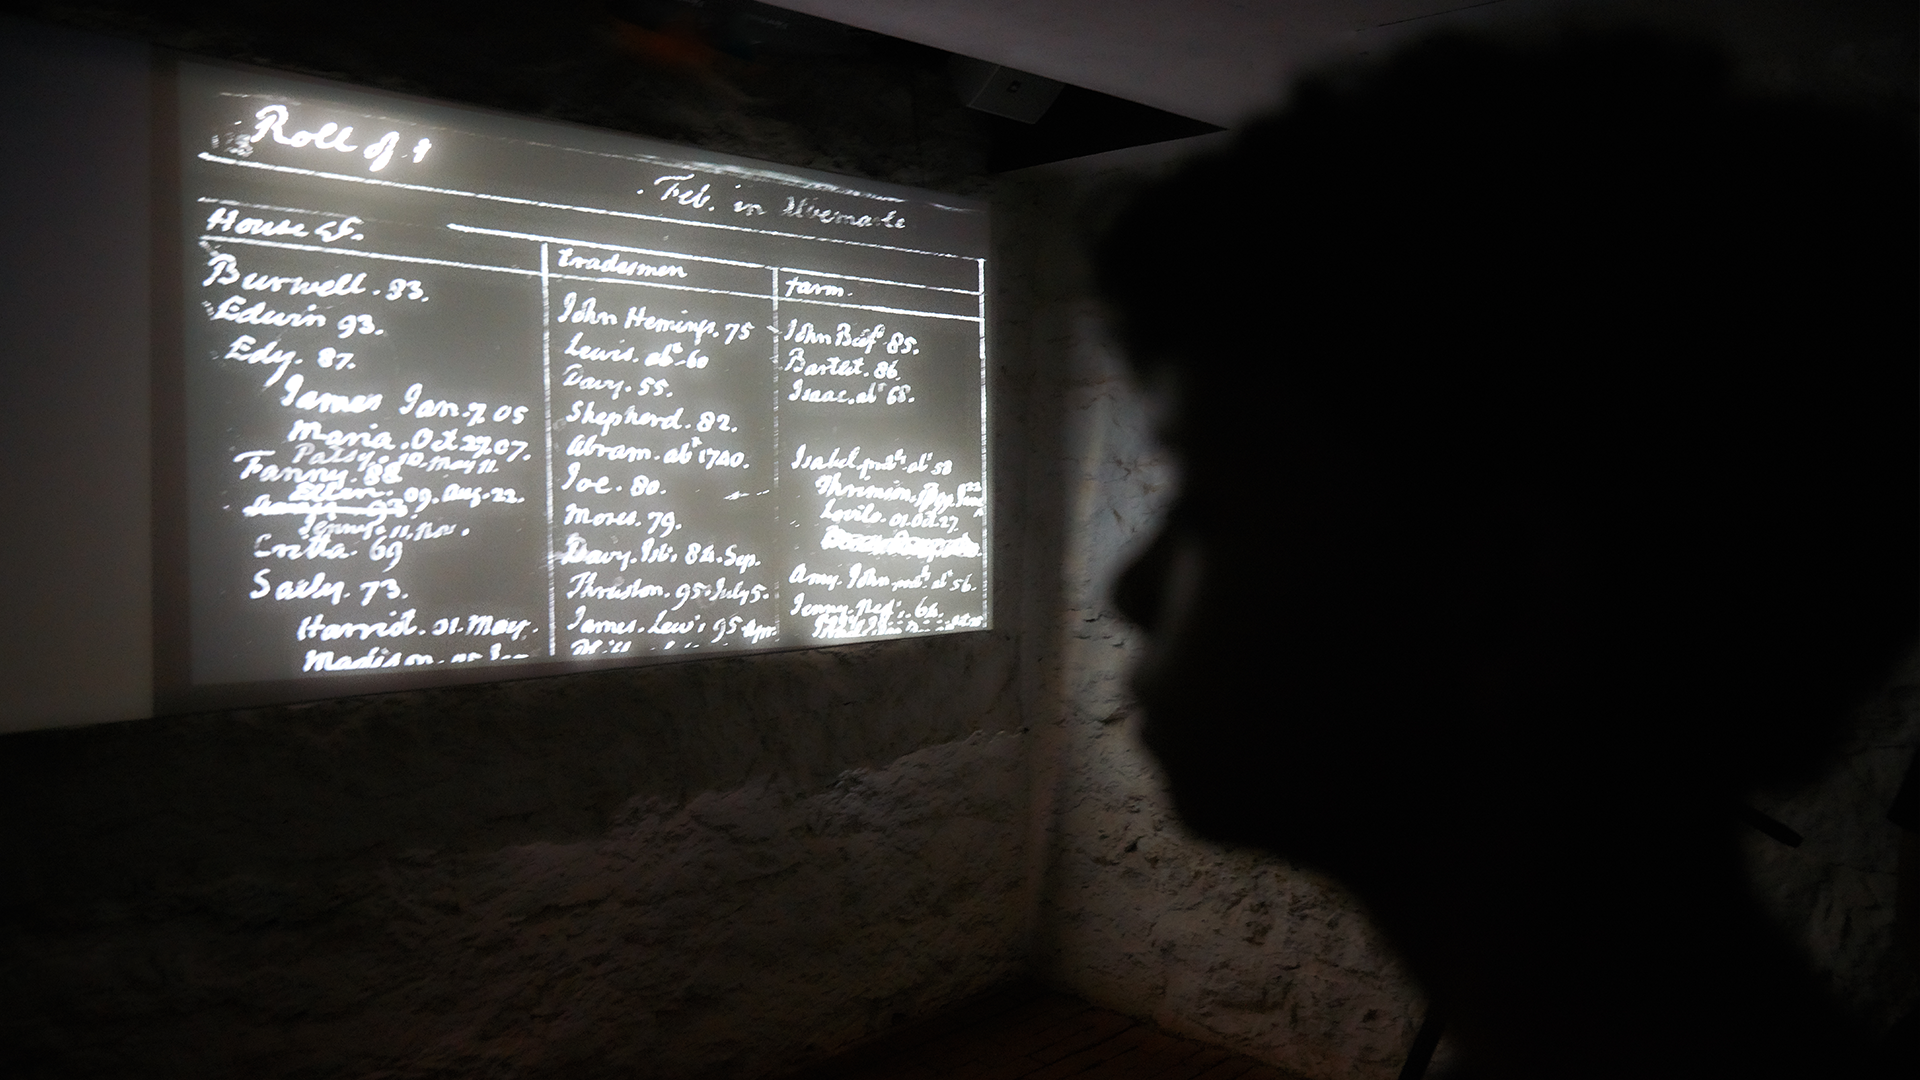 Roll of
Feb. in Albemarle
House &c.
Burwell. 83.
Edwin 93.
Edy. 87.
James Jan. 7. 05
Maria. Oct 27. 07.
Patsy. 10. May 11.
Fanny. 88
Ellen. 09. Aug. 22.
Jenny. 11. Nov.
Critta. 69
Sally. 73.
Harriet. 01. May.
Madison. 05. Jan
tradesmen
John Hemings. 75
Lewis. abt 60
Davy. 55.
Shepherd. 82.
Abram. abt 1740.
Joe. 80.
Moses. 79.
Davy. Isb's 84. Sep.
Thruston. 95. July 5.
James. Lew's 95 Apr.
farm.
John Bedf. 85.
Bartlet. 86.
Isaac. abt 68.
Isabel. abt 58
Lovilo. 01. Oct. 27.
Amy. John abt 56.
Jenny. Ned's. 64.